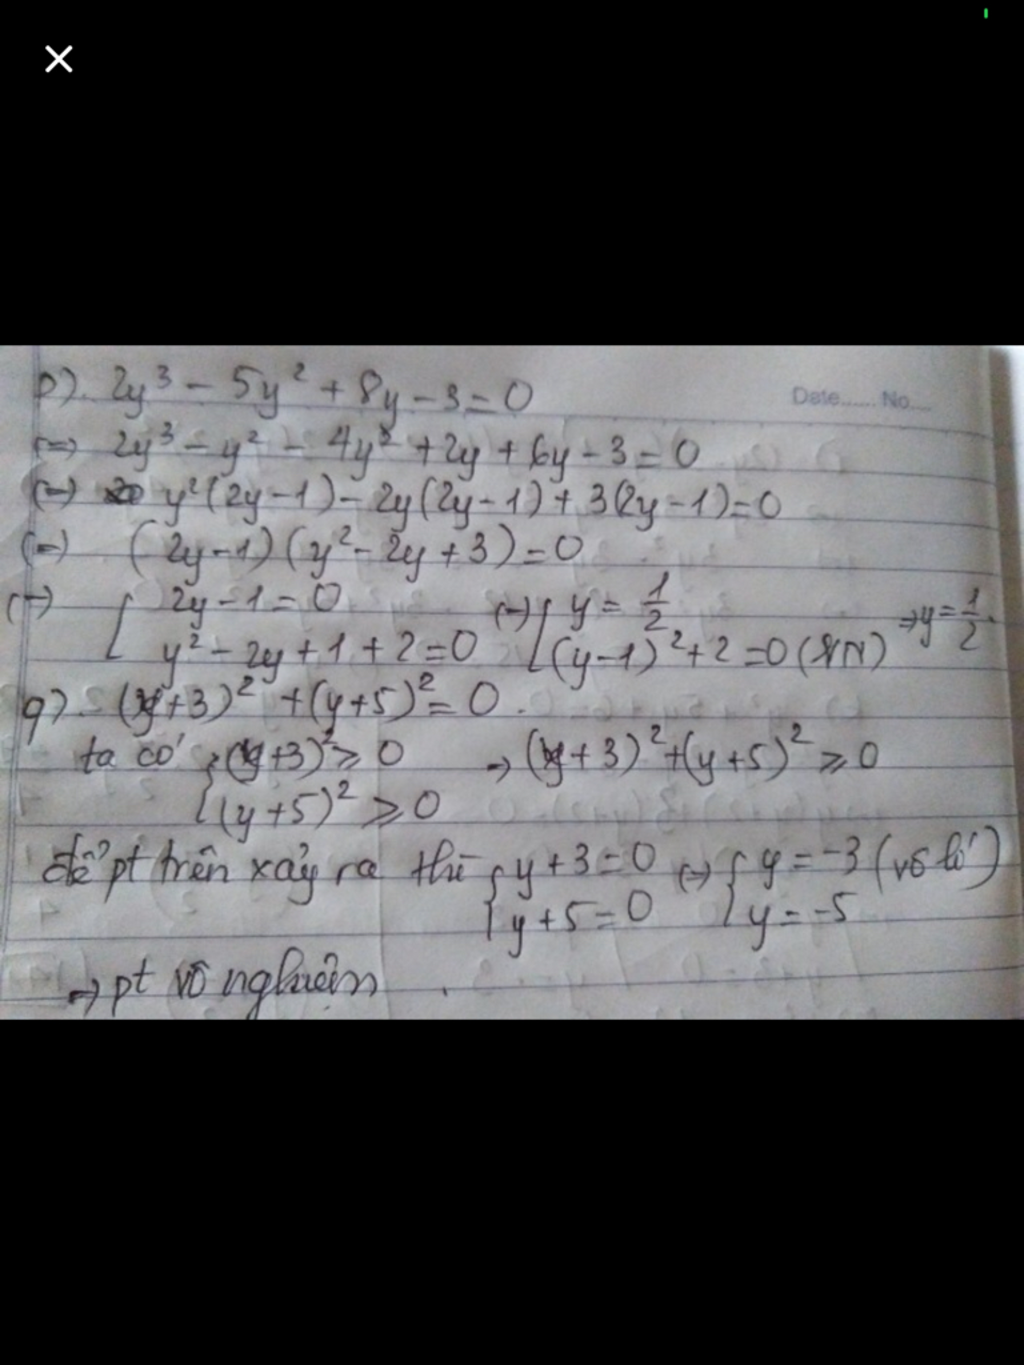 p). 2y³ - 5y² + 8y - 3 = 0
Date...... No....
(=) 2y³ - y² - 4y² + 2y + 6y - 3 = 0
(=) y²(2y-1) - 2y(2y-1) + 3(2y-1) = 0
(=) (2y-1)(y² - 2y + 3) = 0
(=) [ 2y - 1 = 0 (=) [ y = 1/2 => y = 1/2.
y² - 2y + 1 + 2 = 0 (y-1)² + 2 = 0 (VN)
q) (y+3)² + (y+5)² = 0.
ta có { (y+3)² ≥ 0 => (y+3)² + (y+5)² ≥ 0
(y+5)² ≥ 0
để pt trên xảy ra thì { y + 3 = 0 (=) { y = -3 (vô lí)
y + 5 = 0 y = -5
=> pt vô nghiệm